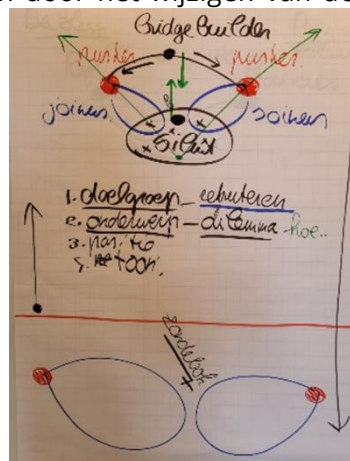 door het wijzigen van de
Bridge Builder
pusher
pusher
joiners
joiners
Silent
1. doelgroep - rekruteren
2. onderwerp - dilemma - hoe..
3. positie
4. toon.
zondebok